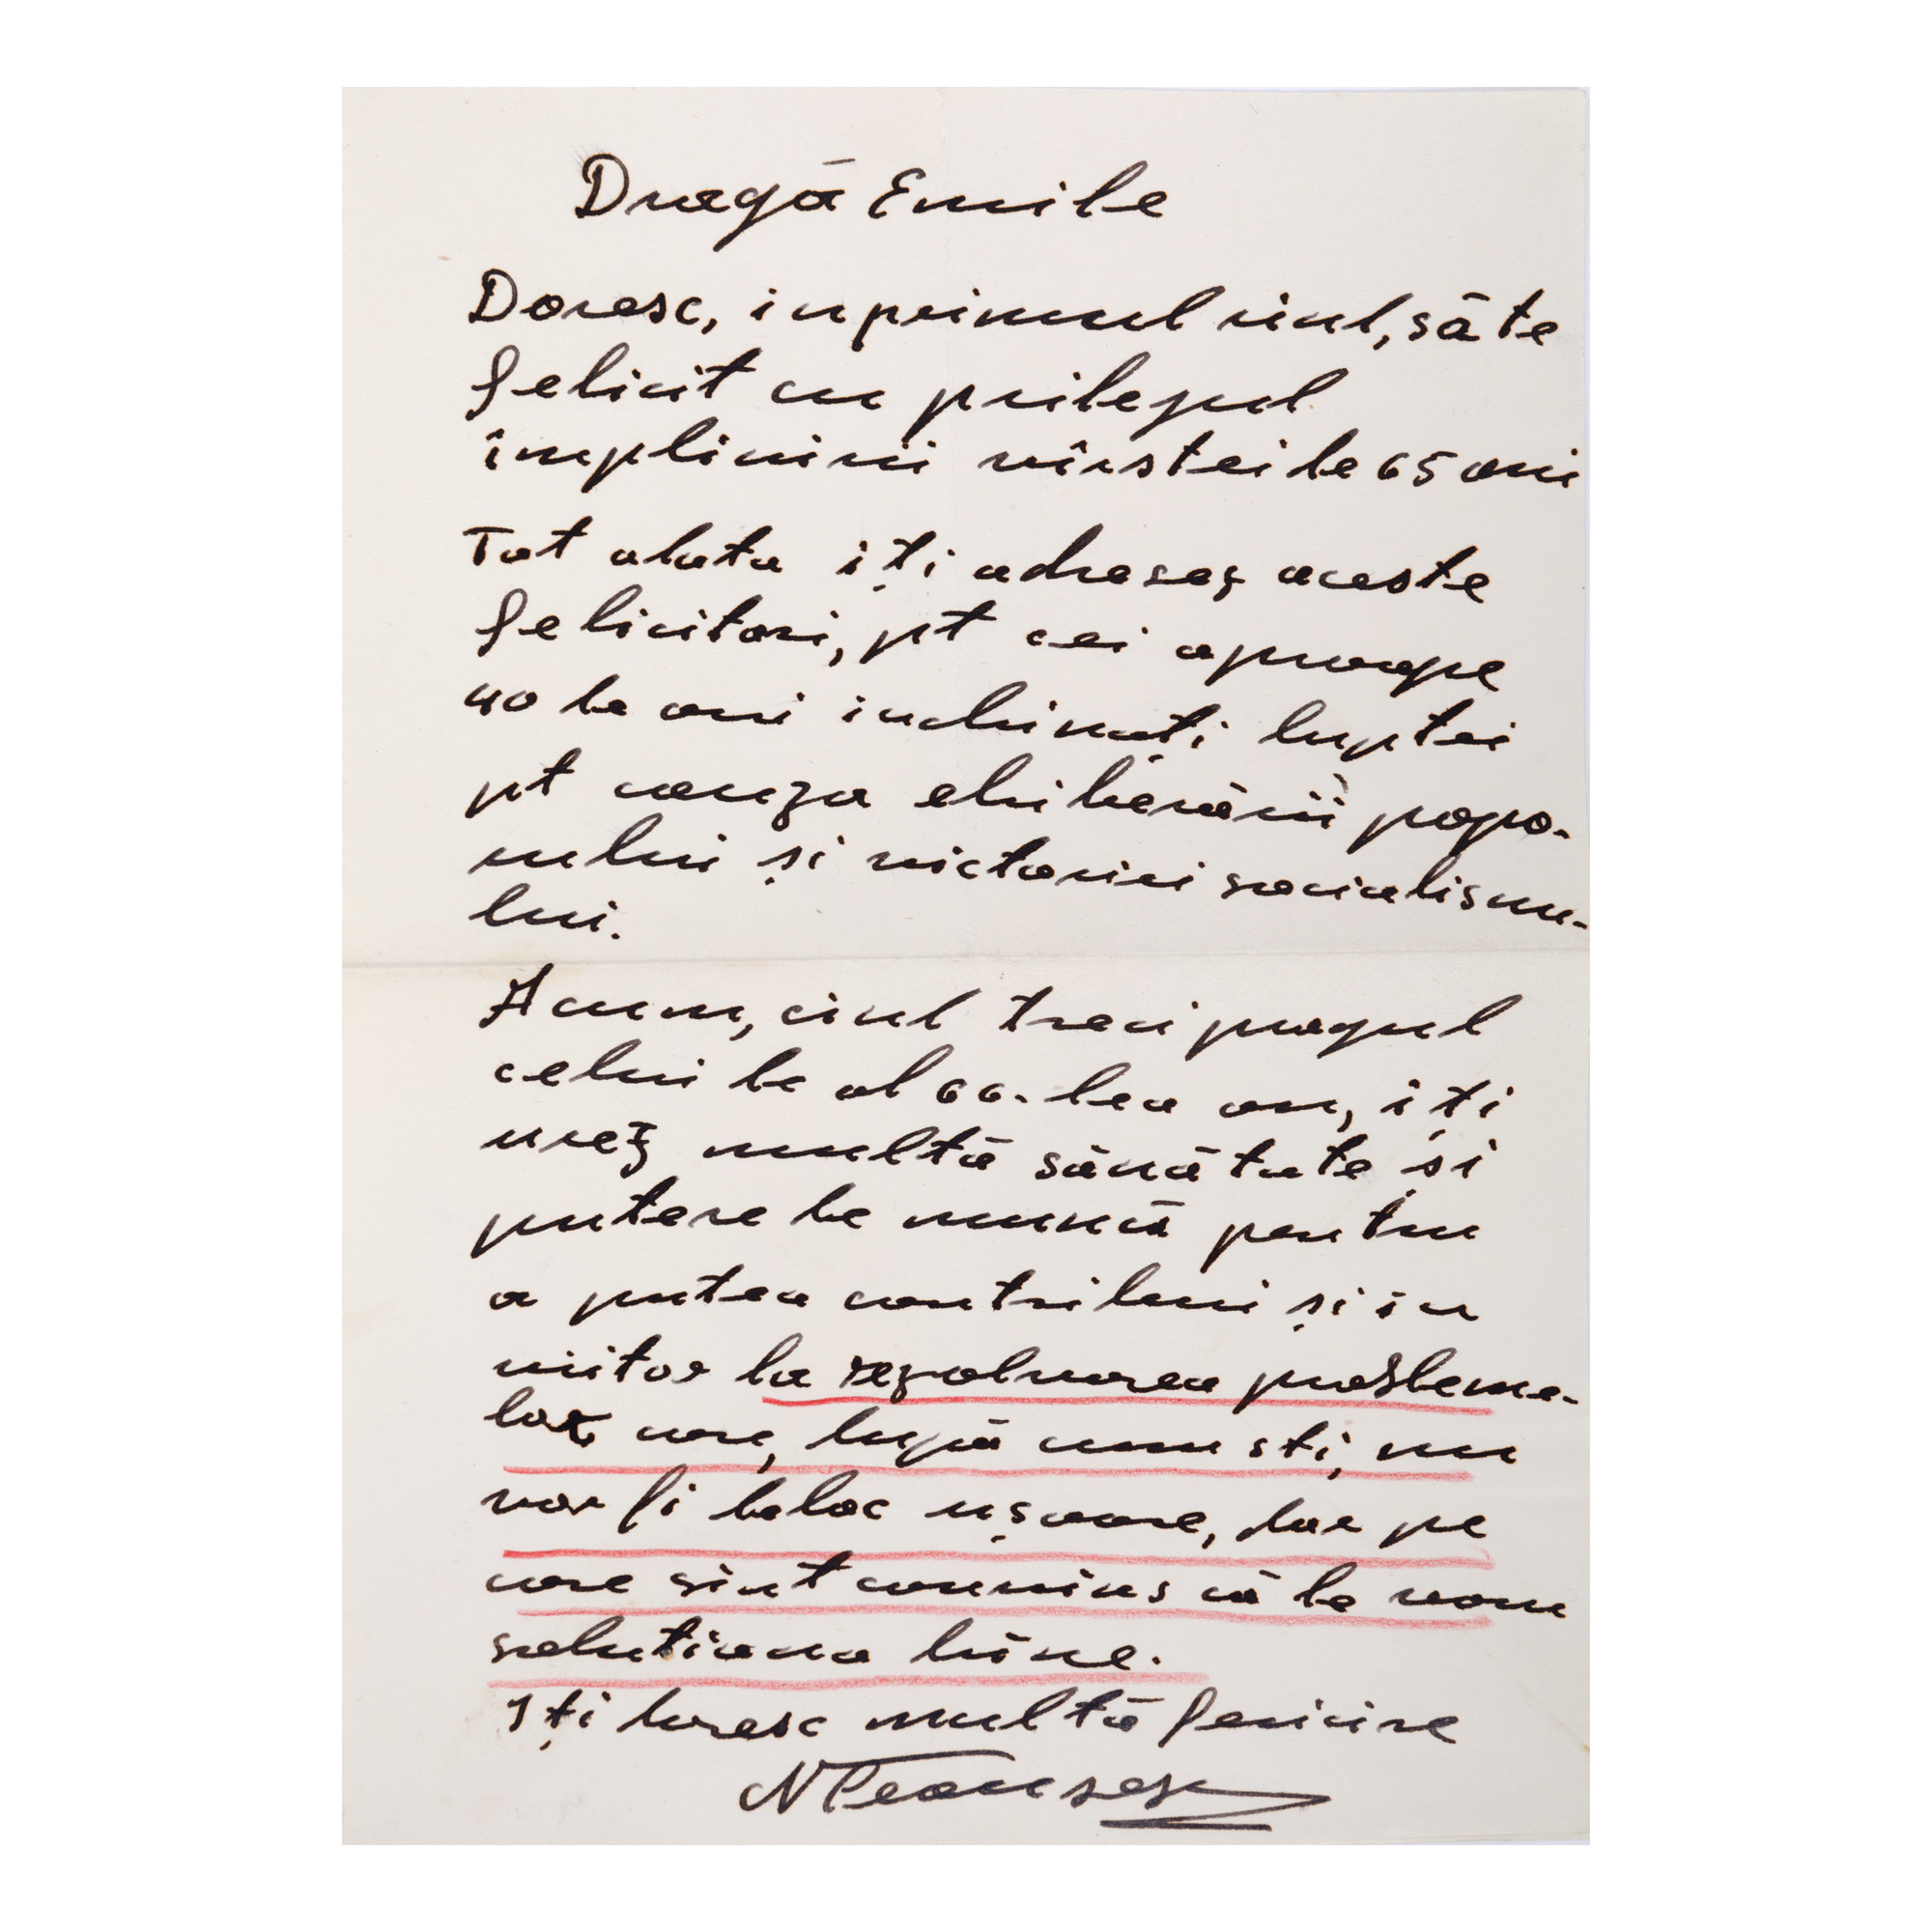 Dragă Emile
Doresc, in primul rînd, să te
felicit cu prilejul
împlinirii vîrstei de 65 ani
Tot odata iți adresez aceste
felicitari, pt cei aproape
40 de ani inchinați luptei
pt cauza eliberării popo-
rului și victoriei socialismu-
lui.
Acum, cind treci pragul
celui de al 66-lea an, iți
urez multă sănătate și
putere de muncă pentru
a putea contribui și in
viitor la rezolvarea probleme-
lor care, după cum sti, nu
vor fi deloc ușoare, dar pe
care sint convins că le vom
solutiona bine.
Iți doresc multă fericire
N Ceausescu